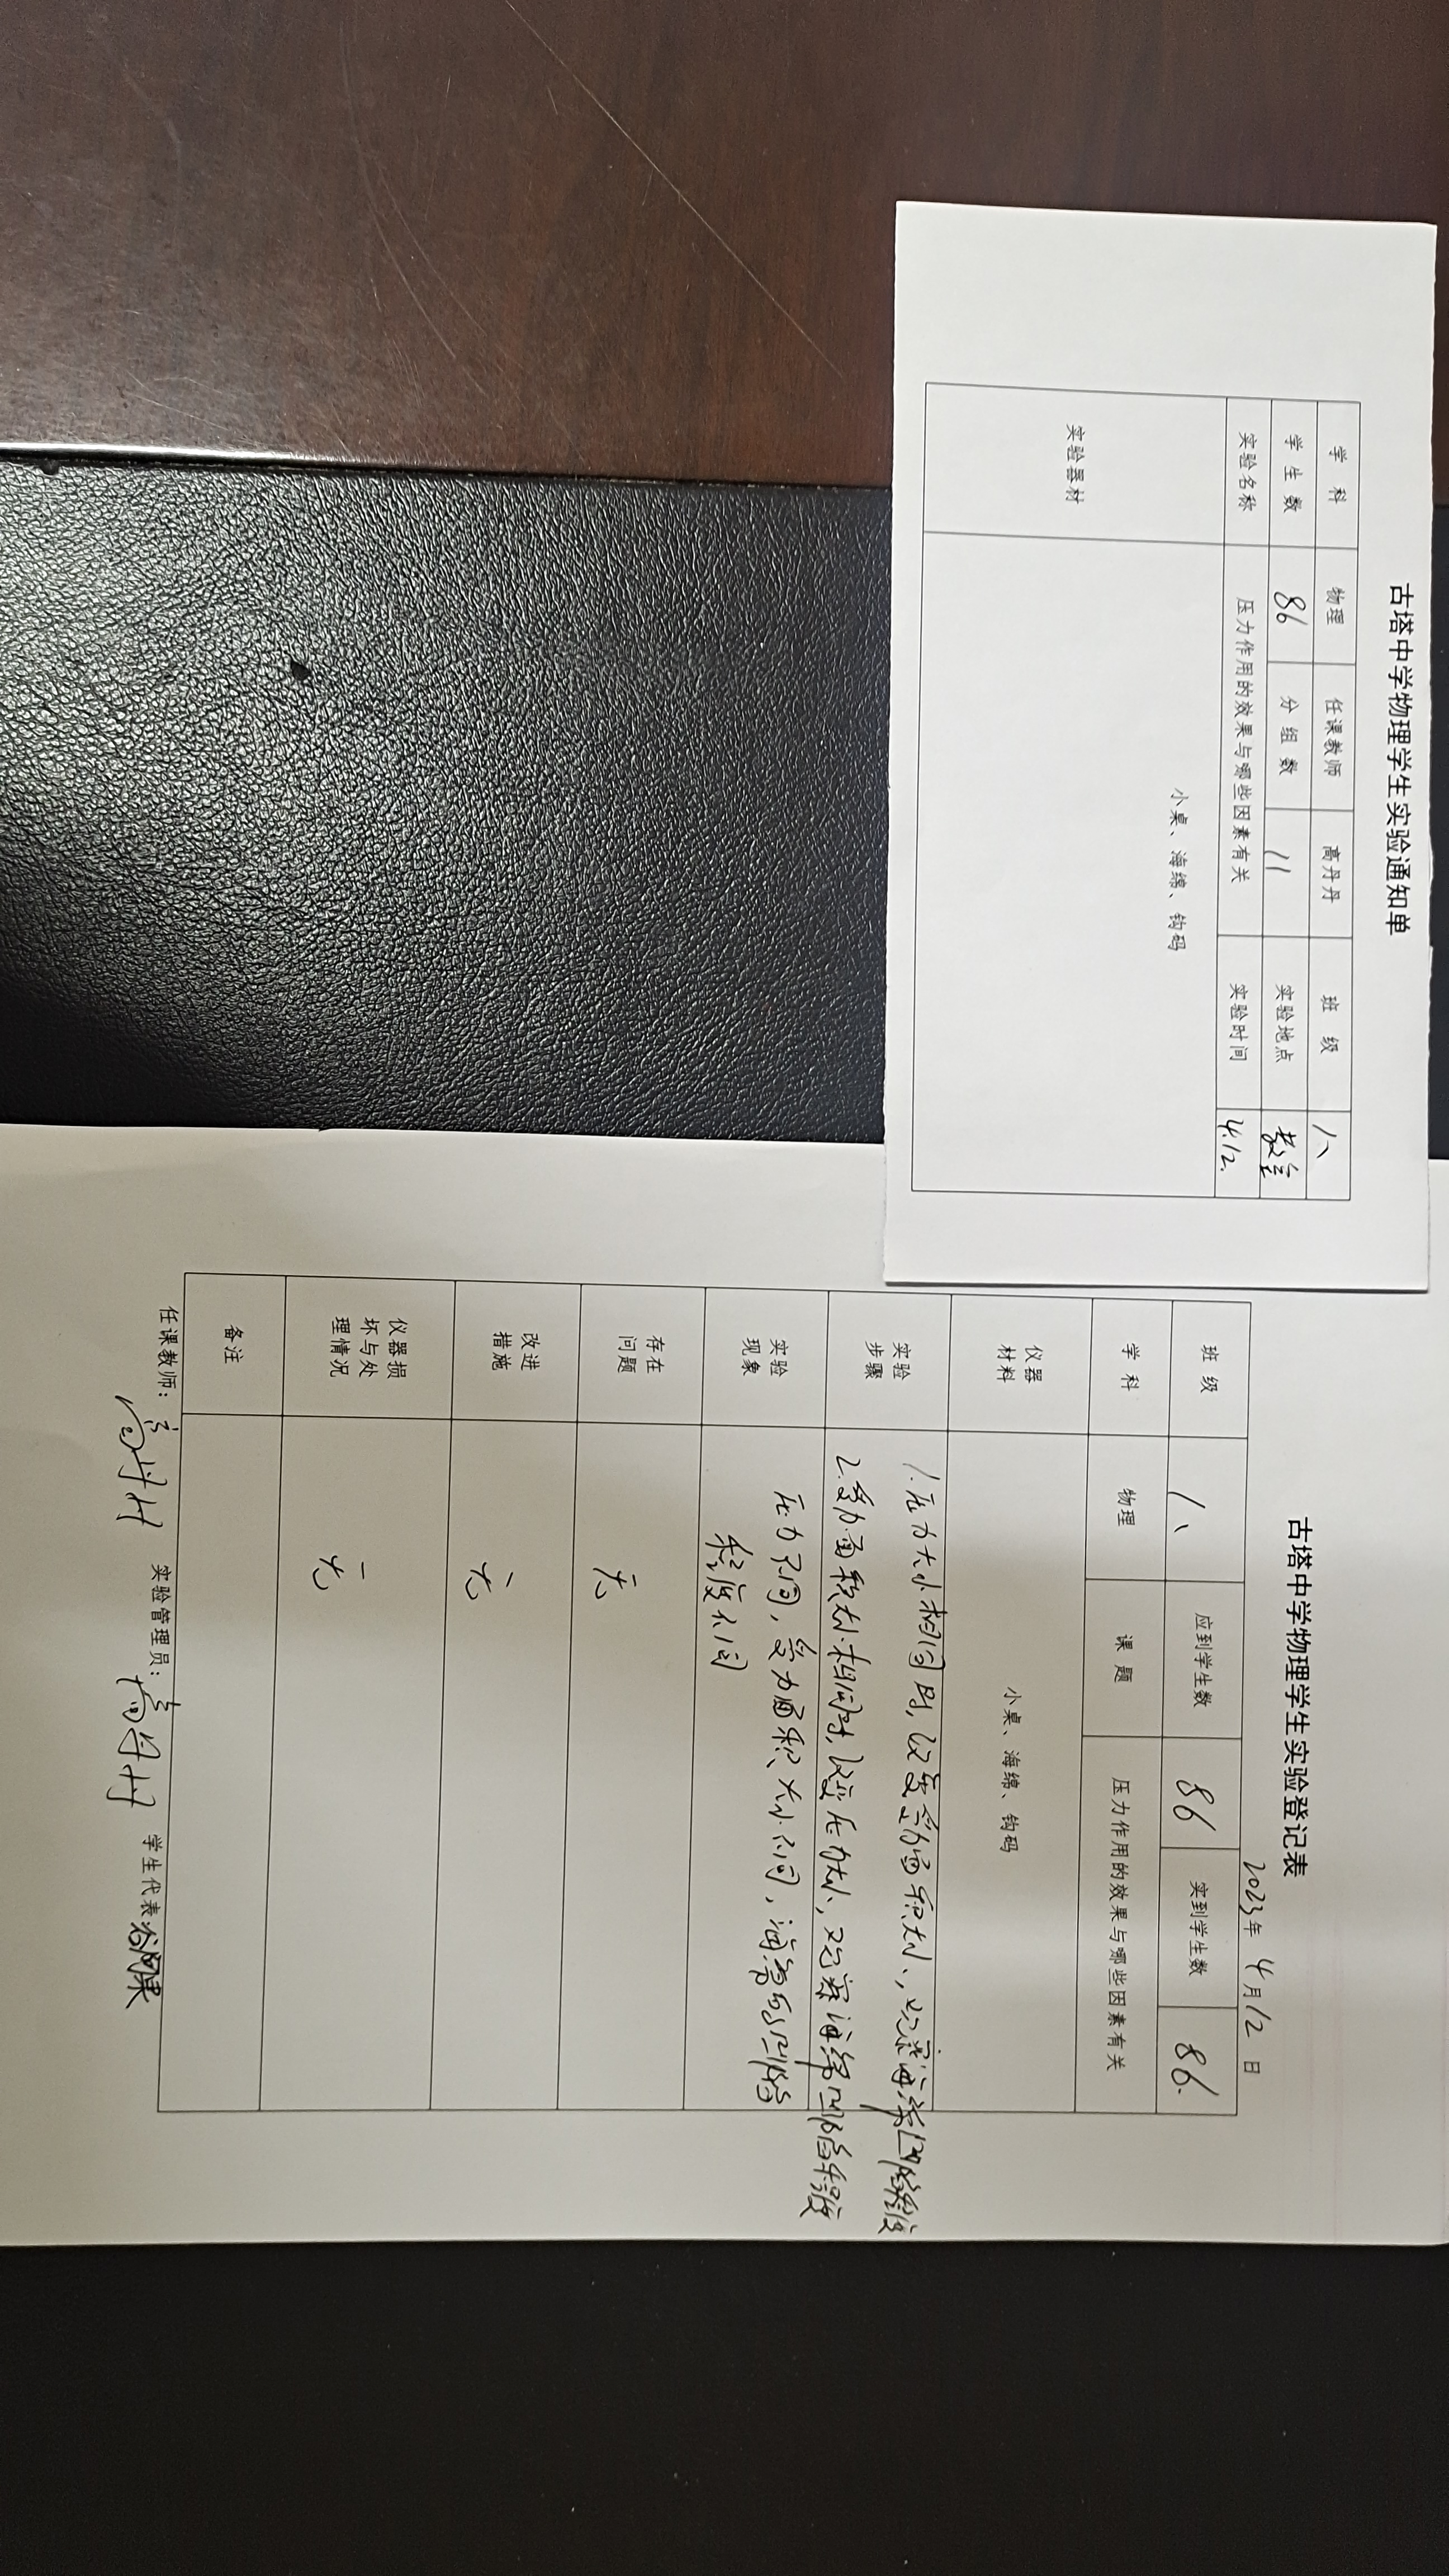 古塔中学物理学生实验通知单
学 科 物理 任课教师 高丹丹 班 级 八
学 生 数 86 分 组 数 11 实验地点 教室
实验名称 压力作用的效果与哪些因素有关 实验时间 4.12.
实验器材 小桌、海绵、钩码
古塔中学物理学生实验登记表
2023年 4月12日
班 级 八 应到学生数 86 实到学生数 86.
学 科 物理 课 题 压力作用的效果与哪些因素有关
仪器材料 小桌、海绵、钩码
实验步骤 1.压力大小相同时,改变受力面积大小,观察海绵凹陷程度
2.受力面积大小相同时,改变压力大小,观察海绵凹陷程度
实验现象 压力不同,受力面积大小不同,海绵凹陷
程度不同
存在问题 无
改进措施 无
仪器损坏与处理情况 无
备注
任课教师: 高丹丹 实验管理员: 高丹丹 学生代表